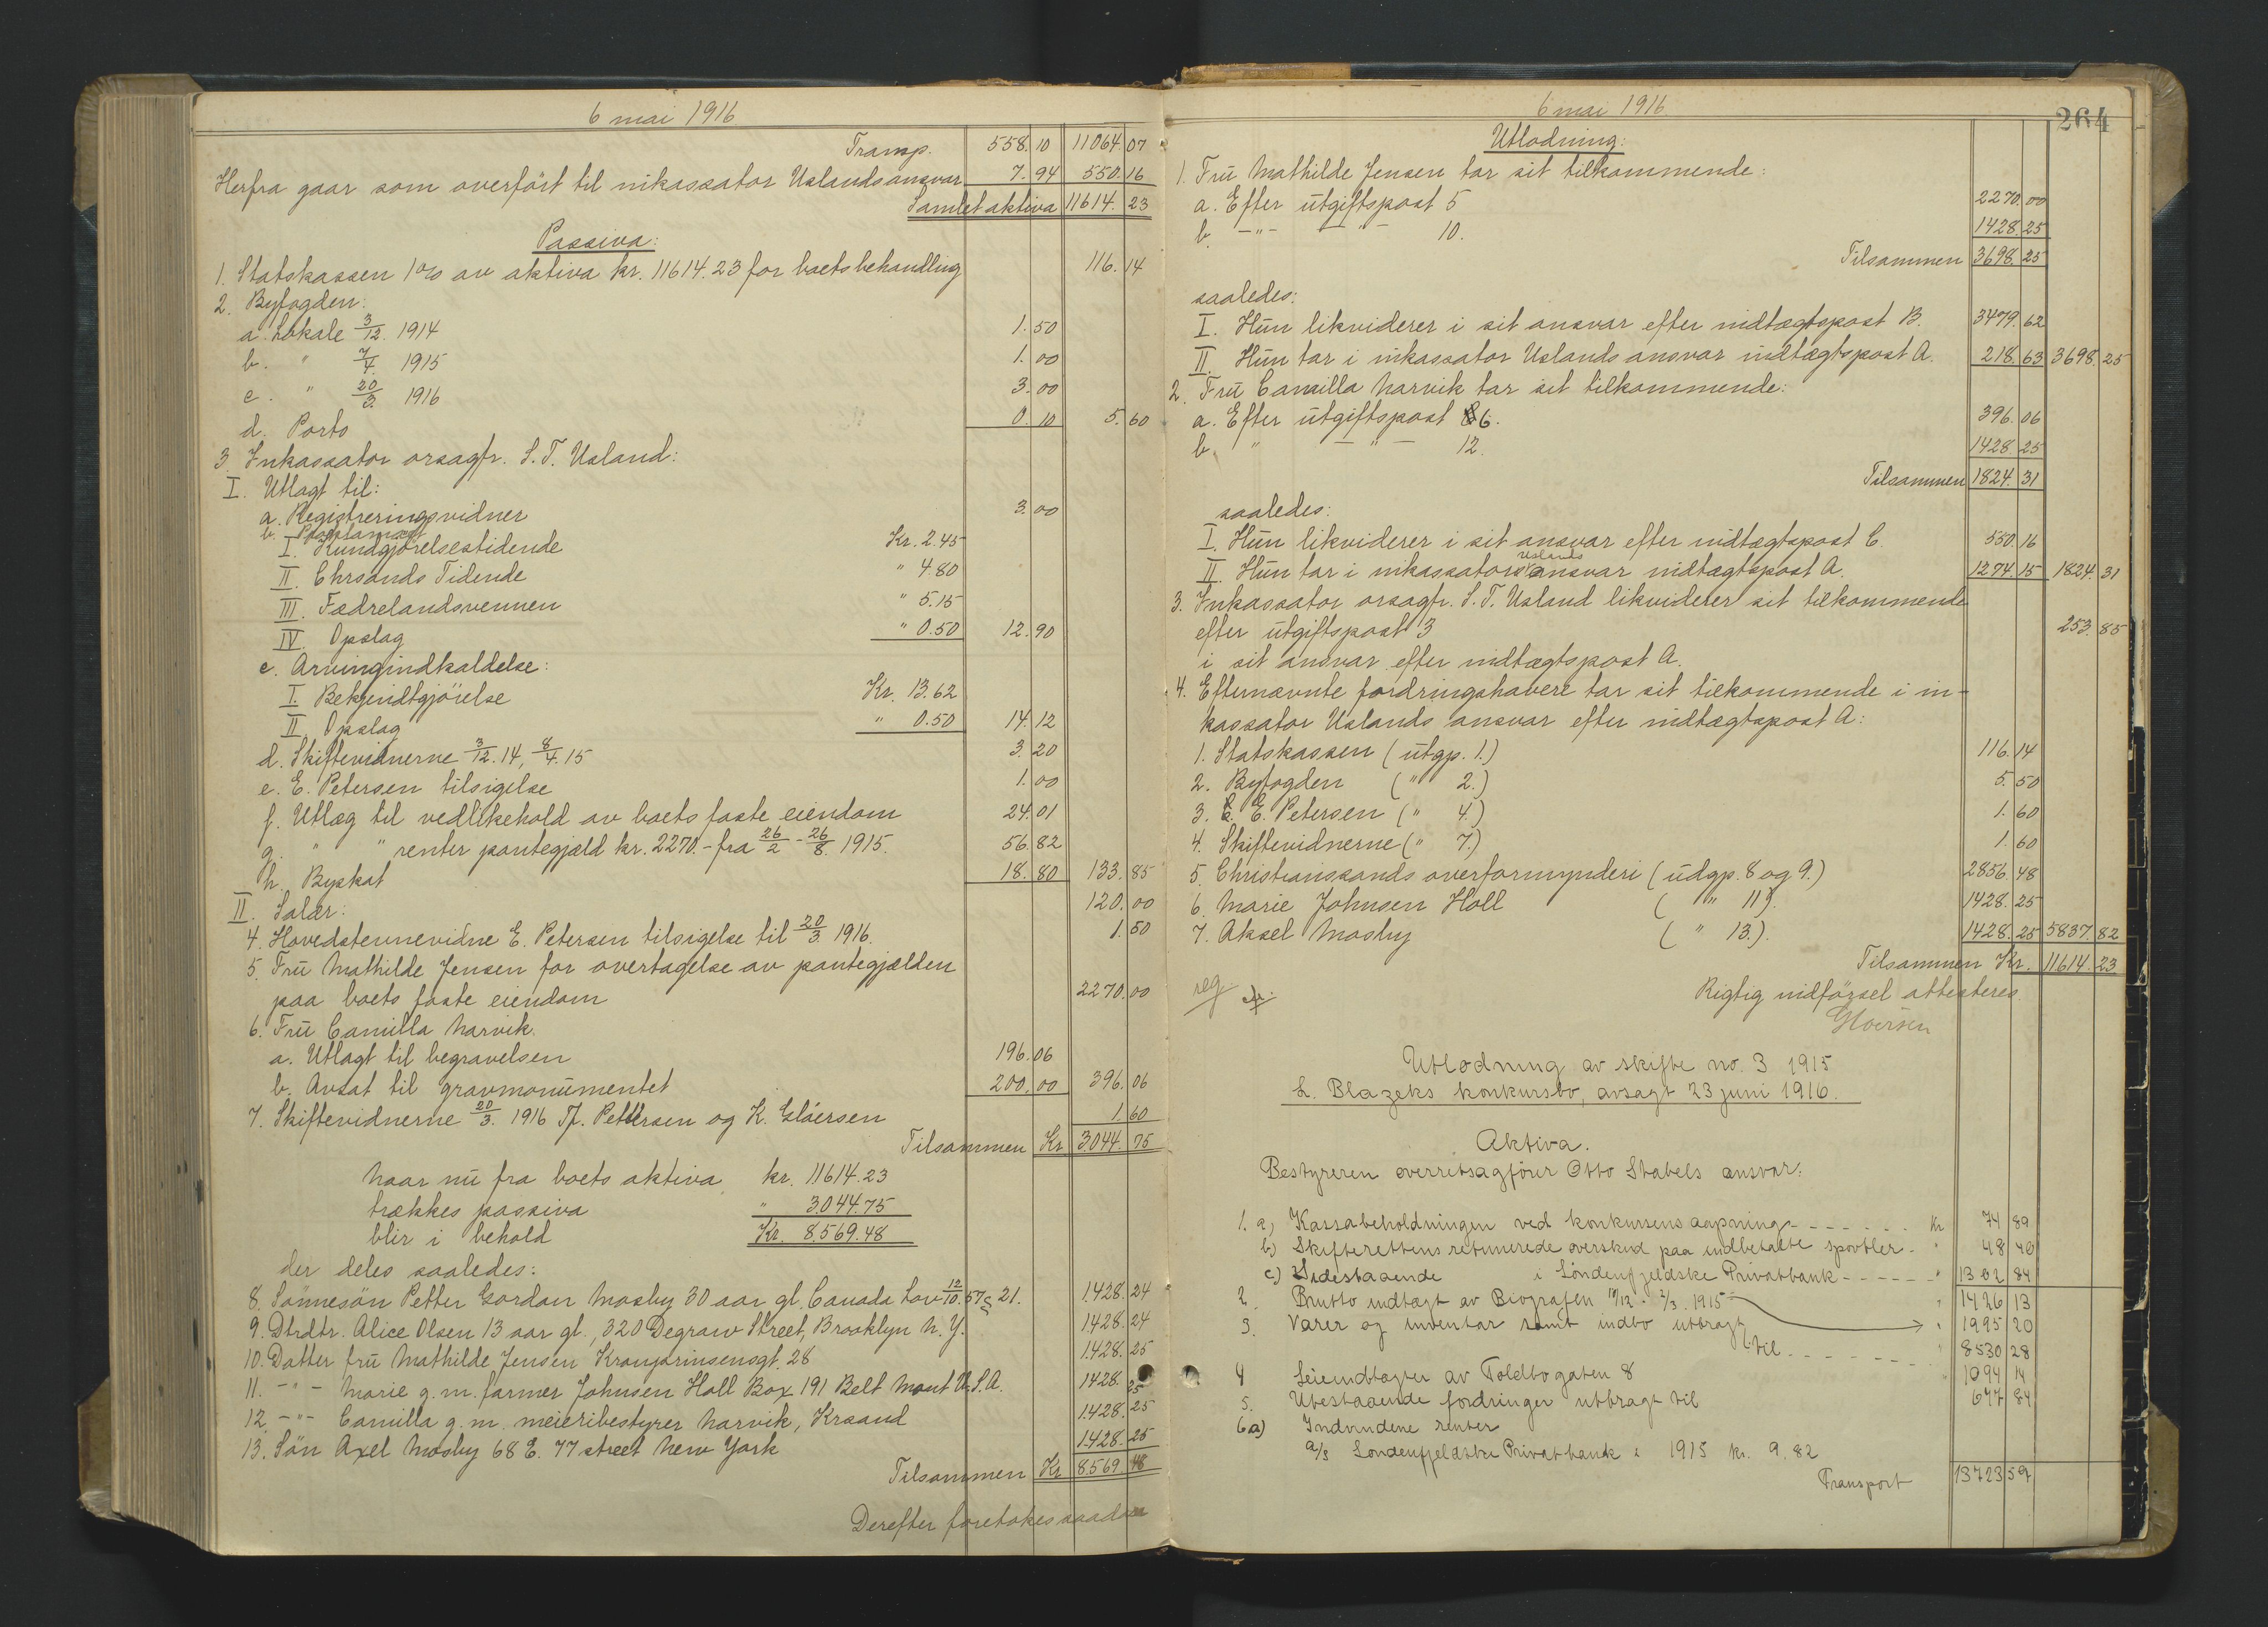 6 mai 1916
Transp. 558.10 11064.07
Herfra gaar som overført til inkassator Uslands ansvar 7.94 550.16
Samlet aktiva 11614.23
Passiva:
1. Statskassen 1% av aktiva kr. 11614.23 for boets behandling 116.14
2. Byfogden:
a. Lokale 3/12. 1914 1.50
b. " 7/4. 1915 1.00
c. " 20/3. 1916 3.00
d. Porto 0.10 5.60
3. Inkassator orsagfr. S. T. Usland:
I. Utlagt til:
a. Registreringsvidner 3.00
b. Proklamaet
I. Kundgjørelsestidende Kr. 2.45
II. Chrsands Tidende " 4.80
III. Fædrelandsvennen " 5.15
IV. Opslag " 0.50 12.90
c. Arvingindkaldelse:
I. Bekjendtgjørelse Kr. 13.62
II. Opslag " 0.50 14.12
d. Skiftevidnerne 3/12.14, 8/4.15 3.20
e. E. Petersen tilsigelse 1.00
f. Utlæg til vedlikehold av boets faste eiendom 24.01
g. " " renter pantegjæld kr. 2270.- fra 26/2 - 26/8. 1915. 56.82
h. Byskat 18.80 133.85
II. Salær: 120.00
4. Hovedstevnevidne E. Petersen tilsigelse til 20/3 1916. 1.50
5. Fru Mathilde Jensen for overtagelse av pantegjælden
paa boets faste eiendom 2270.00
6. Fru Camilla Narvik.
a. Utlagt til begravelsen 196.06
b. Avsat til gravmonumentet 200.00 396.06
7. Skiftevidnerne 20/3. 1916 Th. Pettersen og K. Gloersen 1.60
Tilsammen Kr 3044.75
Naar nu fra boets aktiva kr. 11614.23
trækkes passiva " 3.044.75
blir i behold Kr. 8.569.48
der deles saaledes:
8. Sønnesøn Petter Gordon Mosby 30 aar gl. Canada Lov 12/10.57 § 21. 1428.24
9. Dtrdtr. Alice Olsen 13 aar gl., 320 Degraw Street, Brooklyn N. Y. 1428.24
10. Datter fru Mathilde Jensen Kronprinsensgt. 28 1.428.25
11. -"- Marie g. m. farmer Johnsen Holl Box 191 Belt Mont U.S.A. 1428.25
12. -"- Camilla g. m. meieribestyrer Narvik, Krsand 1.428.25
13. Søn Axel Mosby 68 E. 77 street New York 1.428.25
Tilsammen Kr 8569.48
Derefter foretokes saadan
6 mai 1916.
264
Utlodning:
1. Fru Mathilde Jensen tar sit tilkommende:
a. Efter utgiftspost 5 2270.00
b. -"- -"- 10. 1428.25
Tilsammen 3698.25
saaledes:
I. Hun likviderer i sit ansvar efter indtægtspost B. 3479.62
II. Hun tar i inkassator Uslands ansvar indtægtspost A. 218.63 3698.25
2. Fru Camilla Narvik tar sit tilkommende:
a. Efter utgiftspost 6. 396.06
b. " -"- 12. 1428.25
Tilsammen 1824.31
saaledes:
I. Hun likviderer i sit ansvar efter indtægtspost C. 550.16
II. Hun tar i inkassator Uslands ansvar indtægtspost A. 1274.15 1824.31
3. Inkassator orsagfr. S. T. Usland likviderer sit tilkommende
efter utgiftspost 3 253.85
i sit ansvar efter indtægtspost A.
4. Efternævnte fordringshavere tar sit tilkommende i in-
kassator Uslands ansvar efter indtægtspost A:
1. Statskassen (utgp. 1.) 116.14
2. Byfogden (" 2.) 5.50
3. E. Petersen (" 4.) 1.60
4. Skiftevidnerne (" 7.) 1.60
5. Christianssands overformynderi (udgp. 8 og 9.) 2856.48
6. Marie Johnsen Holl ( " 11). 1428.25
7. Aksel Mosby ( " 13.). 1428.25 5837.82
Tilsammen Kr. 11614.23
reg
Rigtig indførsel attesteres
Gloersen
Utlodning av skifte no. 3 1915
L. Blazeks konkursbo, avsagt 23 juni 1916.
Aktiva.
Bestyreren overretsagfører Otto Stabels ansvar:
1. a) Kassabeholdningen ved konkursens aapning - - - - - - - Kr 74 89
b) Skifterettens returnerede overskud paa indbetalte sportler - " 48 40
c) Indestaaende i Søndenfjeldske Privatbank - - - - - - " 1302 84
2. Brutto indtægt av Biografen 17/12 - 2/3. 1915 " 1426 13
3. Varer og inventar samt indbo utbragt " 1995 20
til - - - - - - - 8530 28
4 Leieindtægter av Toldbogaten 8 1094 14
5. Utestaaende fordringer utbragt til 647 84
6 a) Indvundene renter
a/s Søndenfjeldske Privatbank i 1915 kr. 9.82
Transport 13723 59